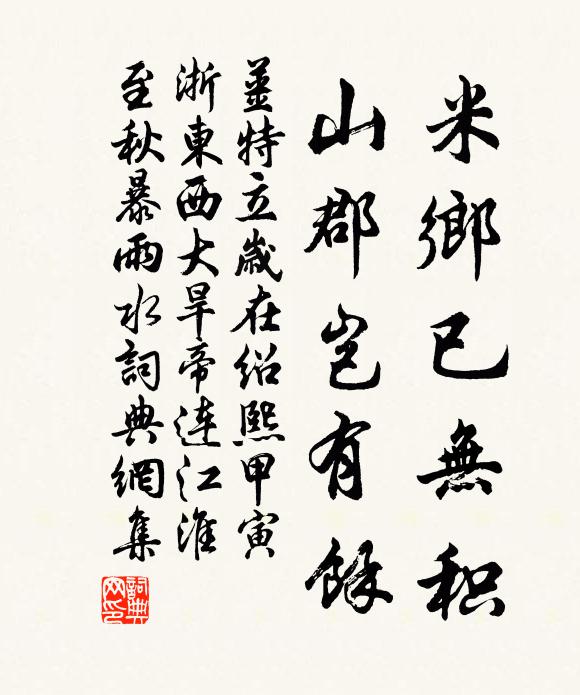 米鄉已無积
山郡岂有餘
姜特立歲在紹熙甲寅
浙東西大旱帝連江淮
至秋暴雨水詞典網集
詞典
网印